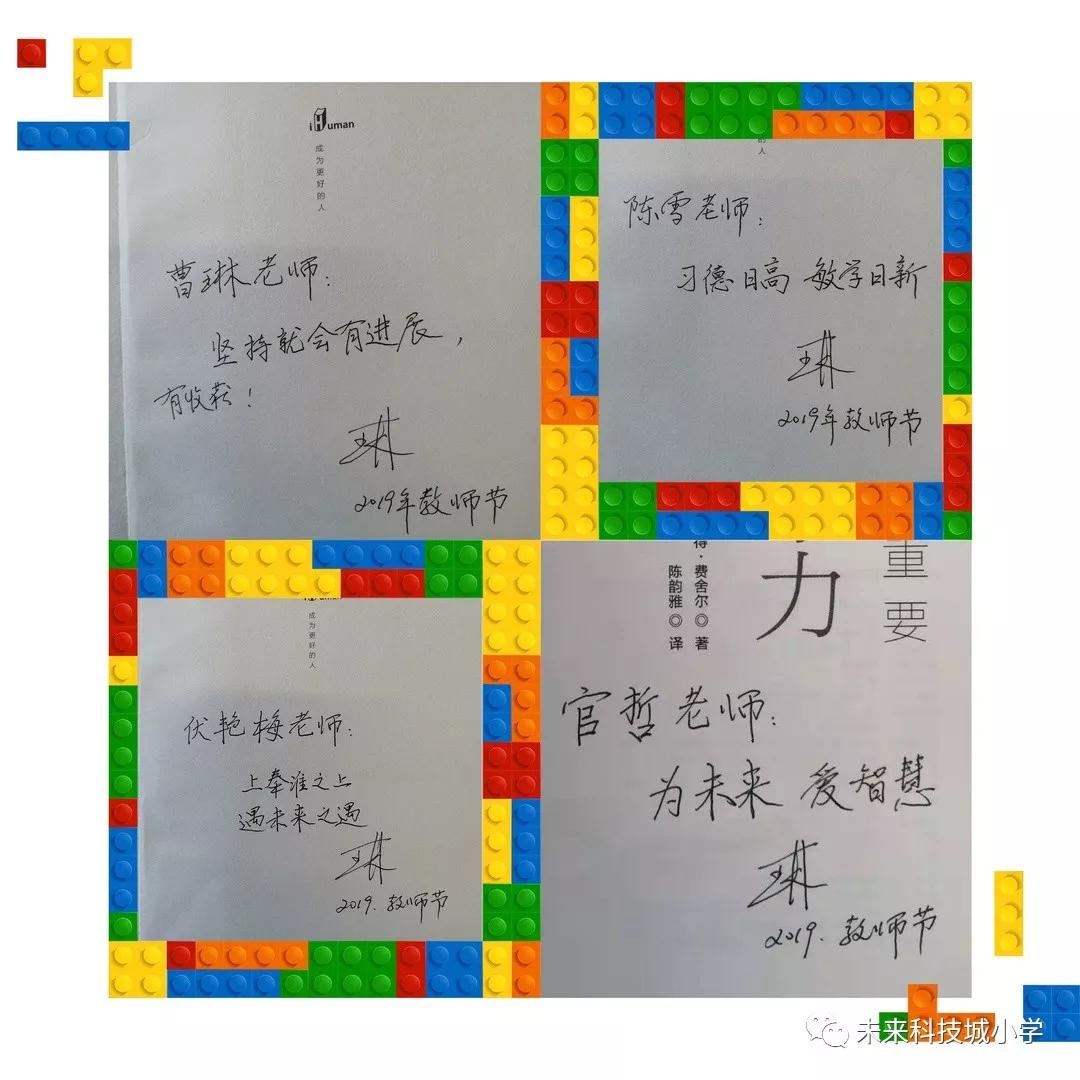 iHuman
成为更好的人
曹琳老师：
坚持就会有进展，
有收获！
琳
2019年教师节
人
陈雪老师：
习德日高 敏学日新
琳
2019年教师节
成为更好的人
伏艳梅老师：
上 之上
遇未来之遇
琳
2019.教师节
重要
力
得·费舍尔◎著
陈韵雅◎译
官哲老师：
为未来 爱智慧
琳
2019.教师节
未来科技城小学